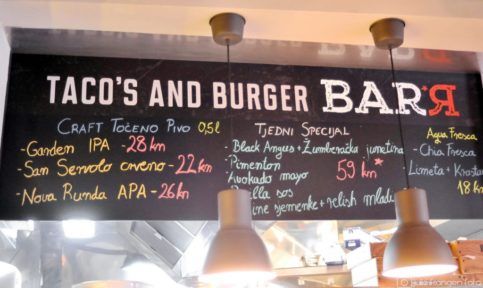 TACO'S AND BURGER BAR*R
CRAFT TOČENO PIVO 0,5l
-Garden IPA -28 kn
-San Servolo crveno -22 kn
-Nova Runda APA -26 kn
TJEDNI SPECIJAL
-Black Angus + Žumberačka junetina
-Pimenton
-Avokado mayo
59 kn*
sos
sjemenke + relish mlad
Agua Fresca
-Chia Fresca
Limeta +
18 kn